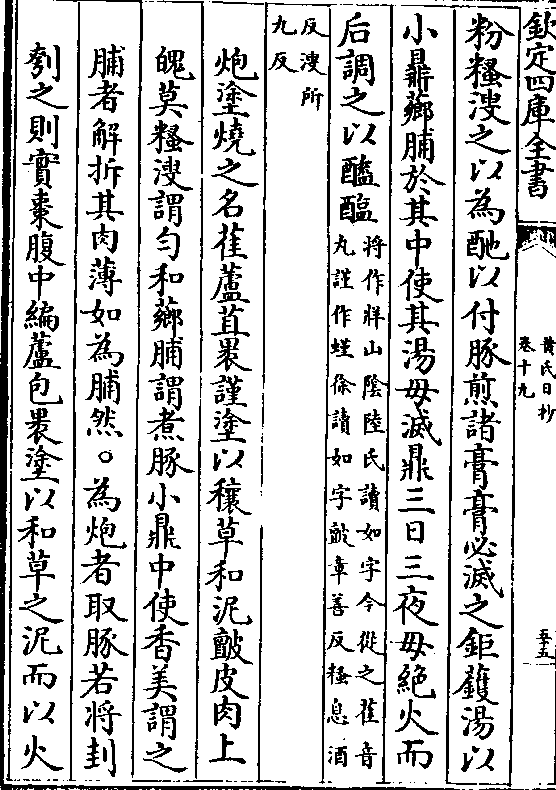 欽定四庫全書
黃氏日抄
卷十九
五十五
粉糔溲之以為酏以付豚煎諸膏膏必滅之鉅鑊湯以
小鼎薌脯於其中使其湯毋滅鼎三日三夜毋絶火而
后調之以醯醢
將作牂山隂陸氏讀如字今從之萑音
丸謹作墐徐讀如字皽章善反糔息酒
反溲所
九反
炮塗燒之名萑蘆苴褁謹塗以穰草和泥皽皮肉上
魄莫糔溲謂匀和薌脯謂煮豚小鼎中使香美謂之
脯者解折其肉薄如為脯然○為炮者取豚若將刲
刳之則實棗腹中編蘆包褁塗以和草之泥而以火